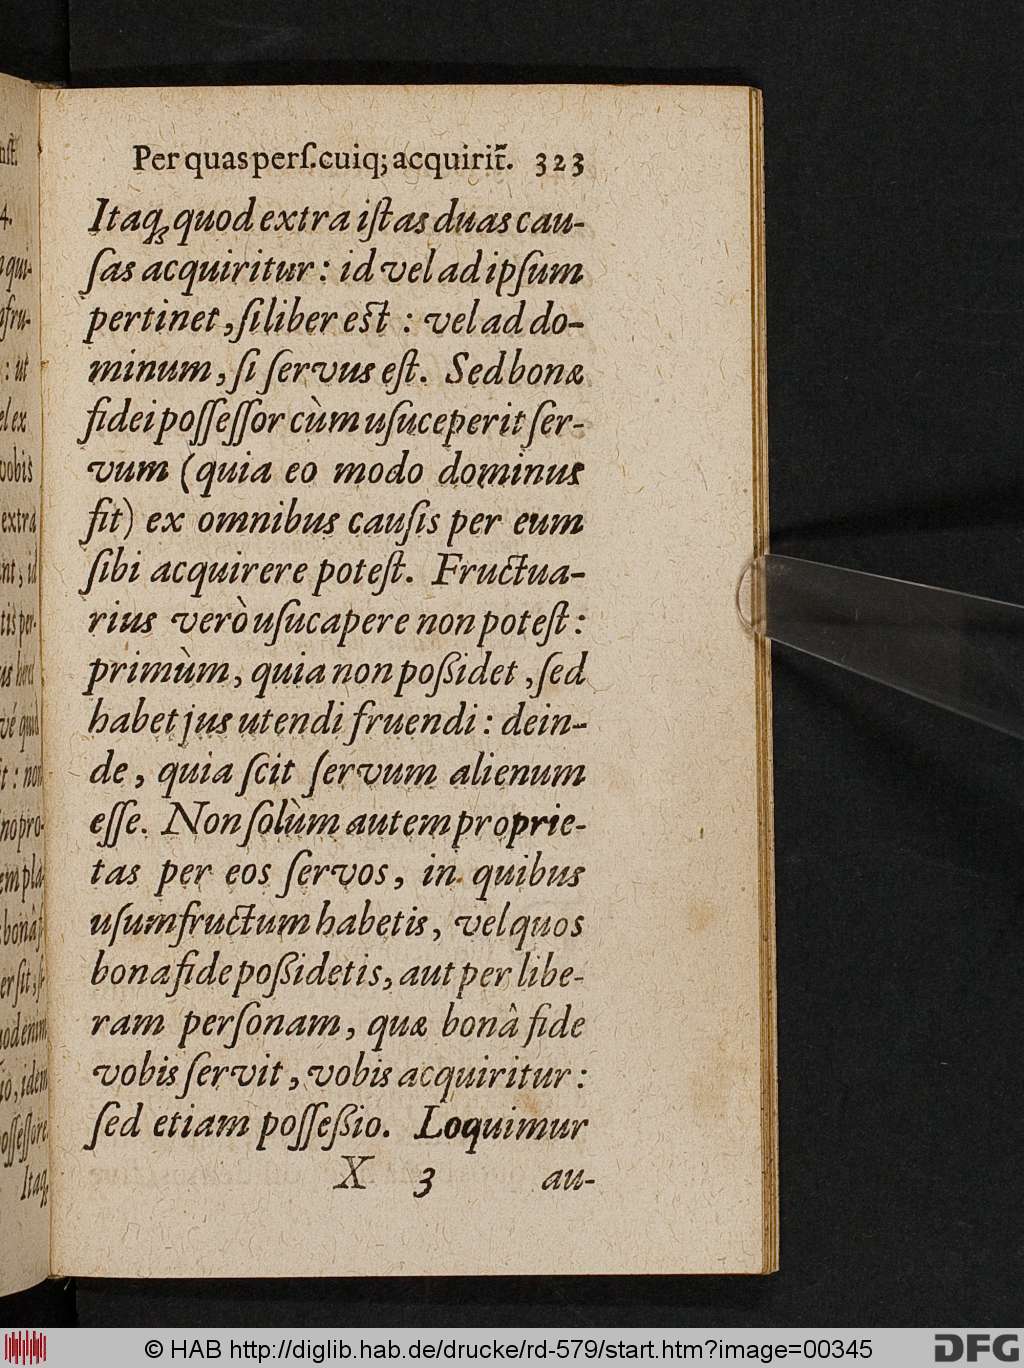 Per quas perſ. cuiq; acquirit̃. 323
Itaq; quod extra iſtas duas cau-
ſas acquiritur: id vel ad ipſum
pertinet, ſi liber est : vel ad do-
minum, ſi ſervus eſt. Sed bonæ
fidei poſſeſſor cùm uſuceperit ſer-
vum (quia eo modo dominus
fit) ex omnibus cauſis per eum
ſibi acquirere poteſt. Fructua-
rius verò uſucapere non poteſt:
primùm, quia non poßidet, ſed
habet jus utendi fruendi: dein-
de, quia ſcit ſervum alienum
eſſe. Non ſolùm autem proprie-
tas per eos ſervos, in quibus
uſumfructum habetis, vel quos
bona fide poßidetis, aut per libe-
ram perſonam, quæ bonâ fide
vobis ſervit, vobis acquiritur:
ſed etiam poſſeßio. Loquimur
X 3 au-
© HAB http://diglib.hab.de/drucke/rd-579/start.htm?image=00345
DFG